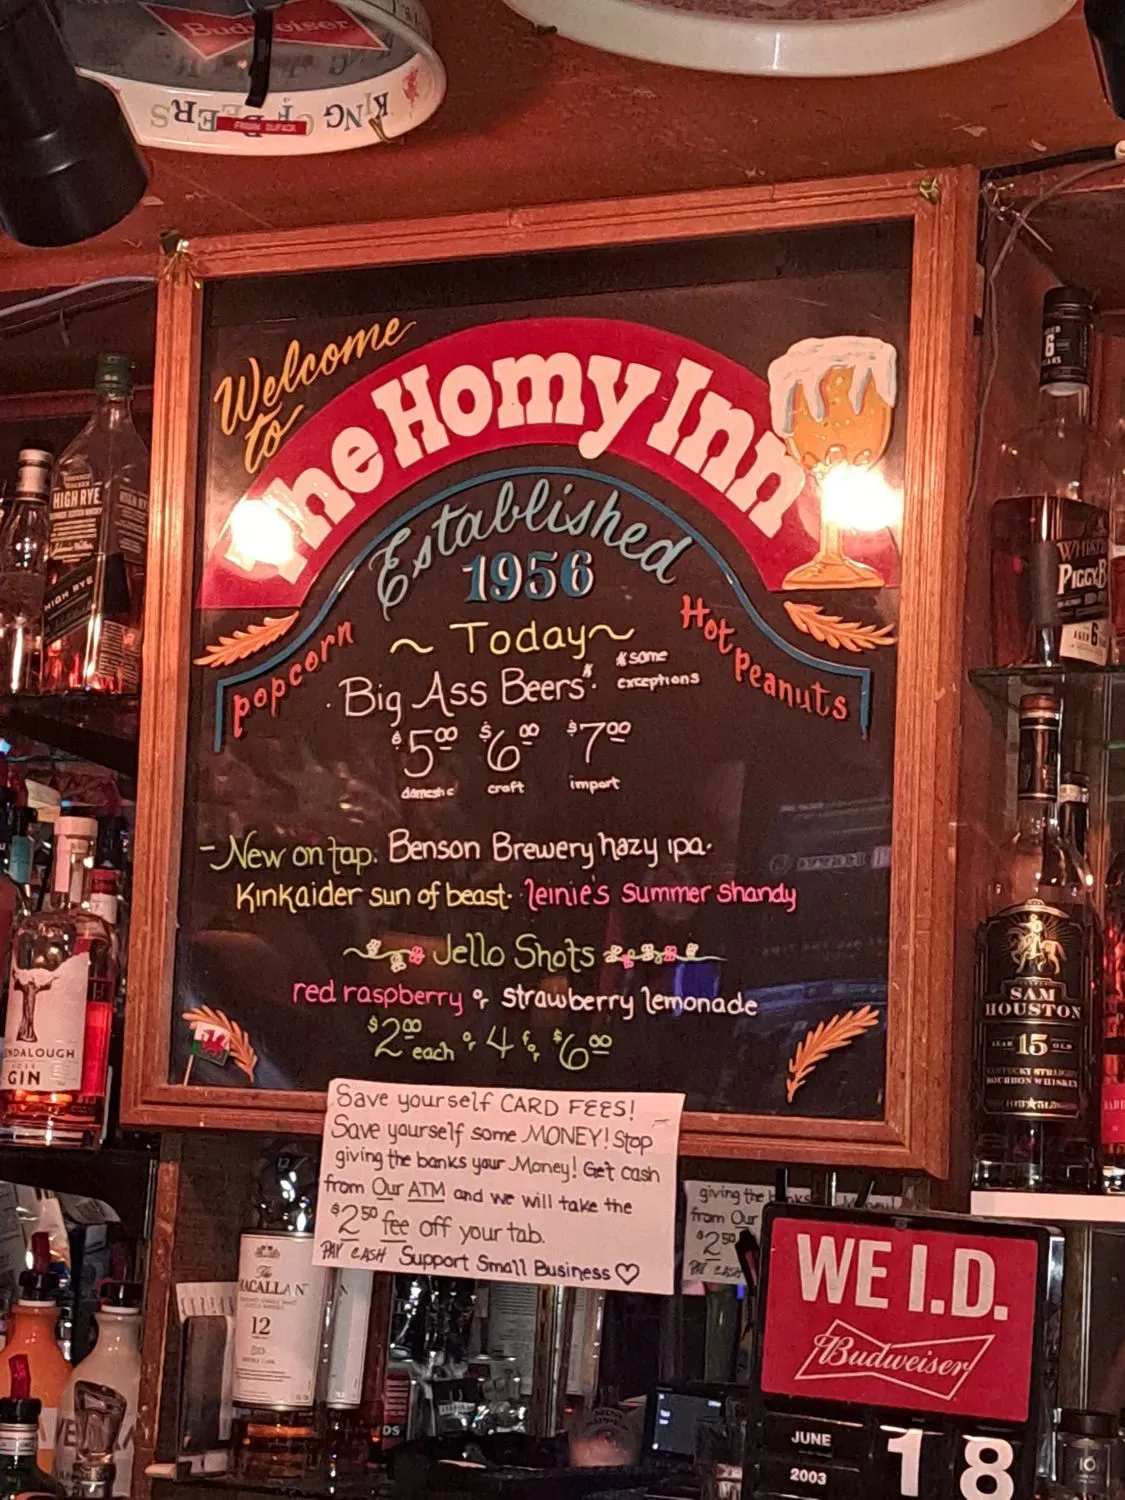 Budweiser
KING OF BEERS
Welcome
to
The Homy Inn
Established
1956
popcorn
Hot Peanuts
~ Today ~
Big Ass Beers*
*some
exceptions
$5.00 $6.00 $7.00
domestic craft import
- New on tap: Benson Brewery hazy ipa.
Kinkaider sun of beast. leinie's summer shandy
Jello Shots
red raspberry or strawberry lemonade
$2.00 each or 4 for $6.00
Save yourself CARD FEES!
Save yourself some MONEY! Stop
giving the banks your Money! Get cash
from Our ATM and we will take the
$2.50 fee off your tab.
PAY CASH Support Small Business ♡
giving the
from Our
$2.50
WE I.D.
Budweiser
JUNE
2003
18
HIGH RYE
HIGH RYE
GIN
The
MACALLAN
12
AGED
6
YEARS
WHIST
PIGGYB
AGED 6
SAM
HOUSTON
YEAR 15 OLD
KENTUCKY STRAIGHT
BOURBON WHISKEY